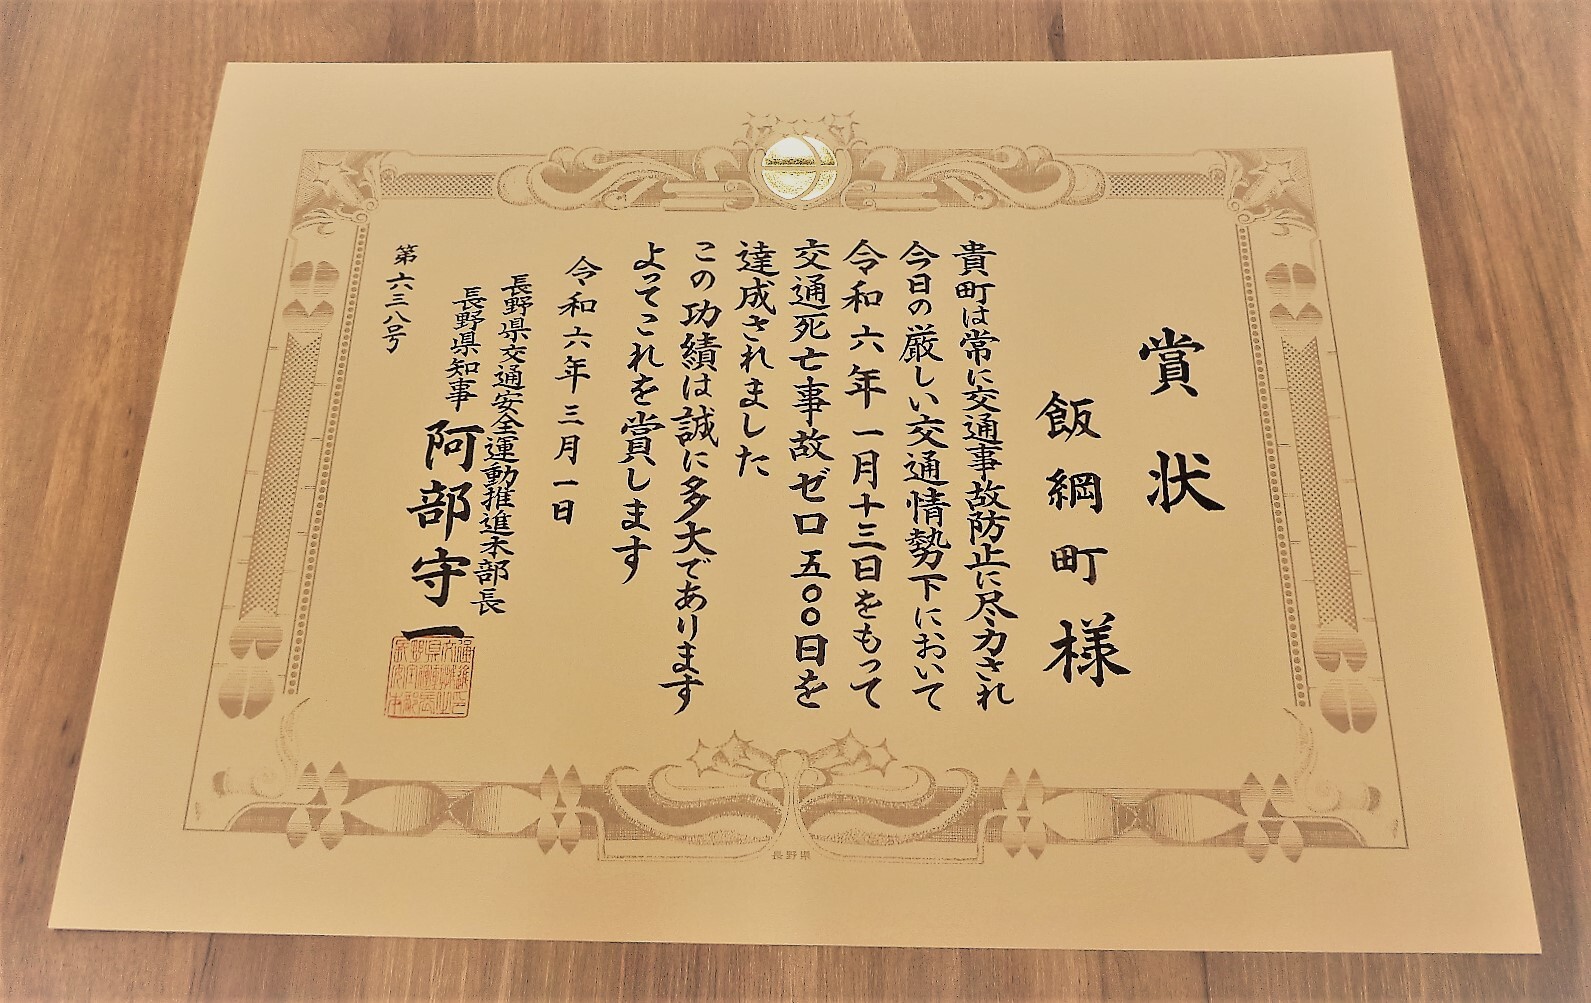 賞状
飯綱町様
貴町は常に交通事故防止に尽力され
今日の厳しい交通情勢下において
令和六年一月十三日をもって
交通死亡事故ゼロ五〇〇日を
達成されました
この功績は誠に多大であります
よってこれを賞します
令和六年三月一日
長野県交通安全運動推進本部長
長野県知事 阿部守一
第六三八号
長野県